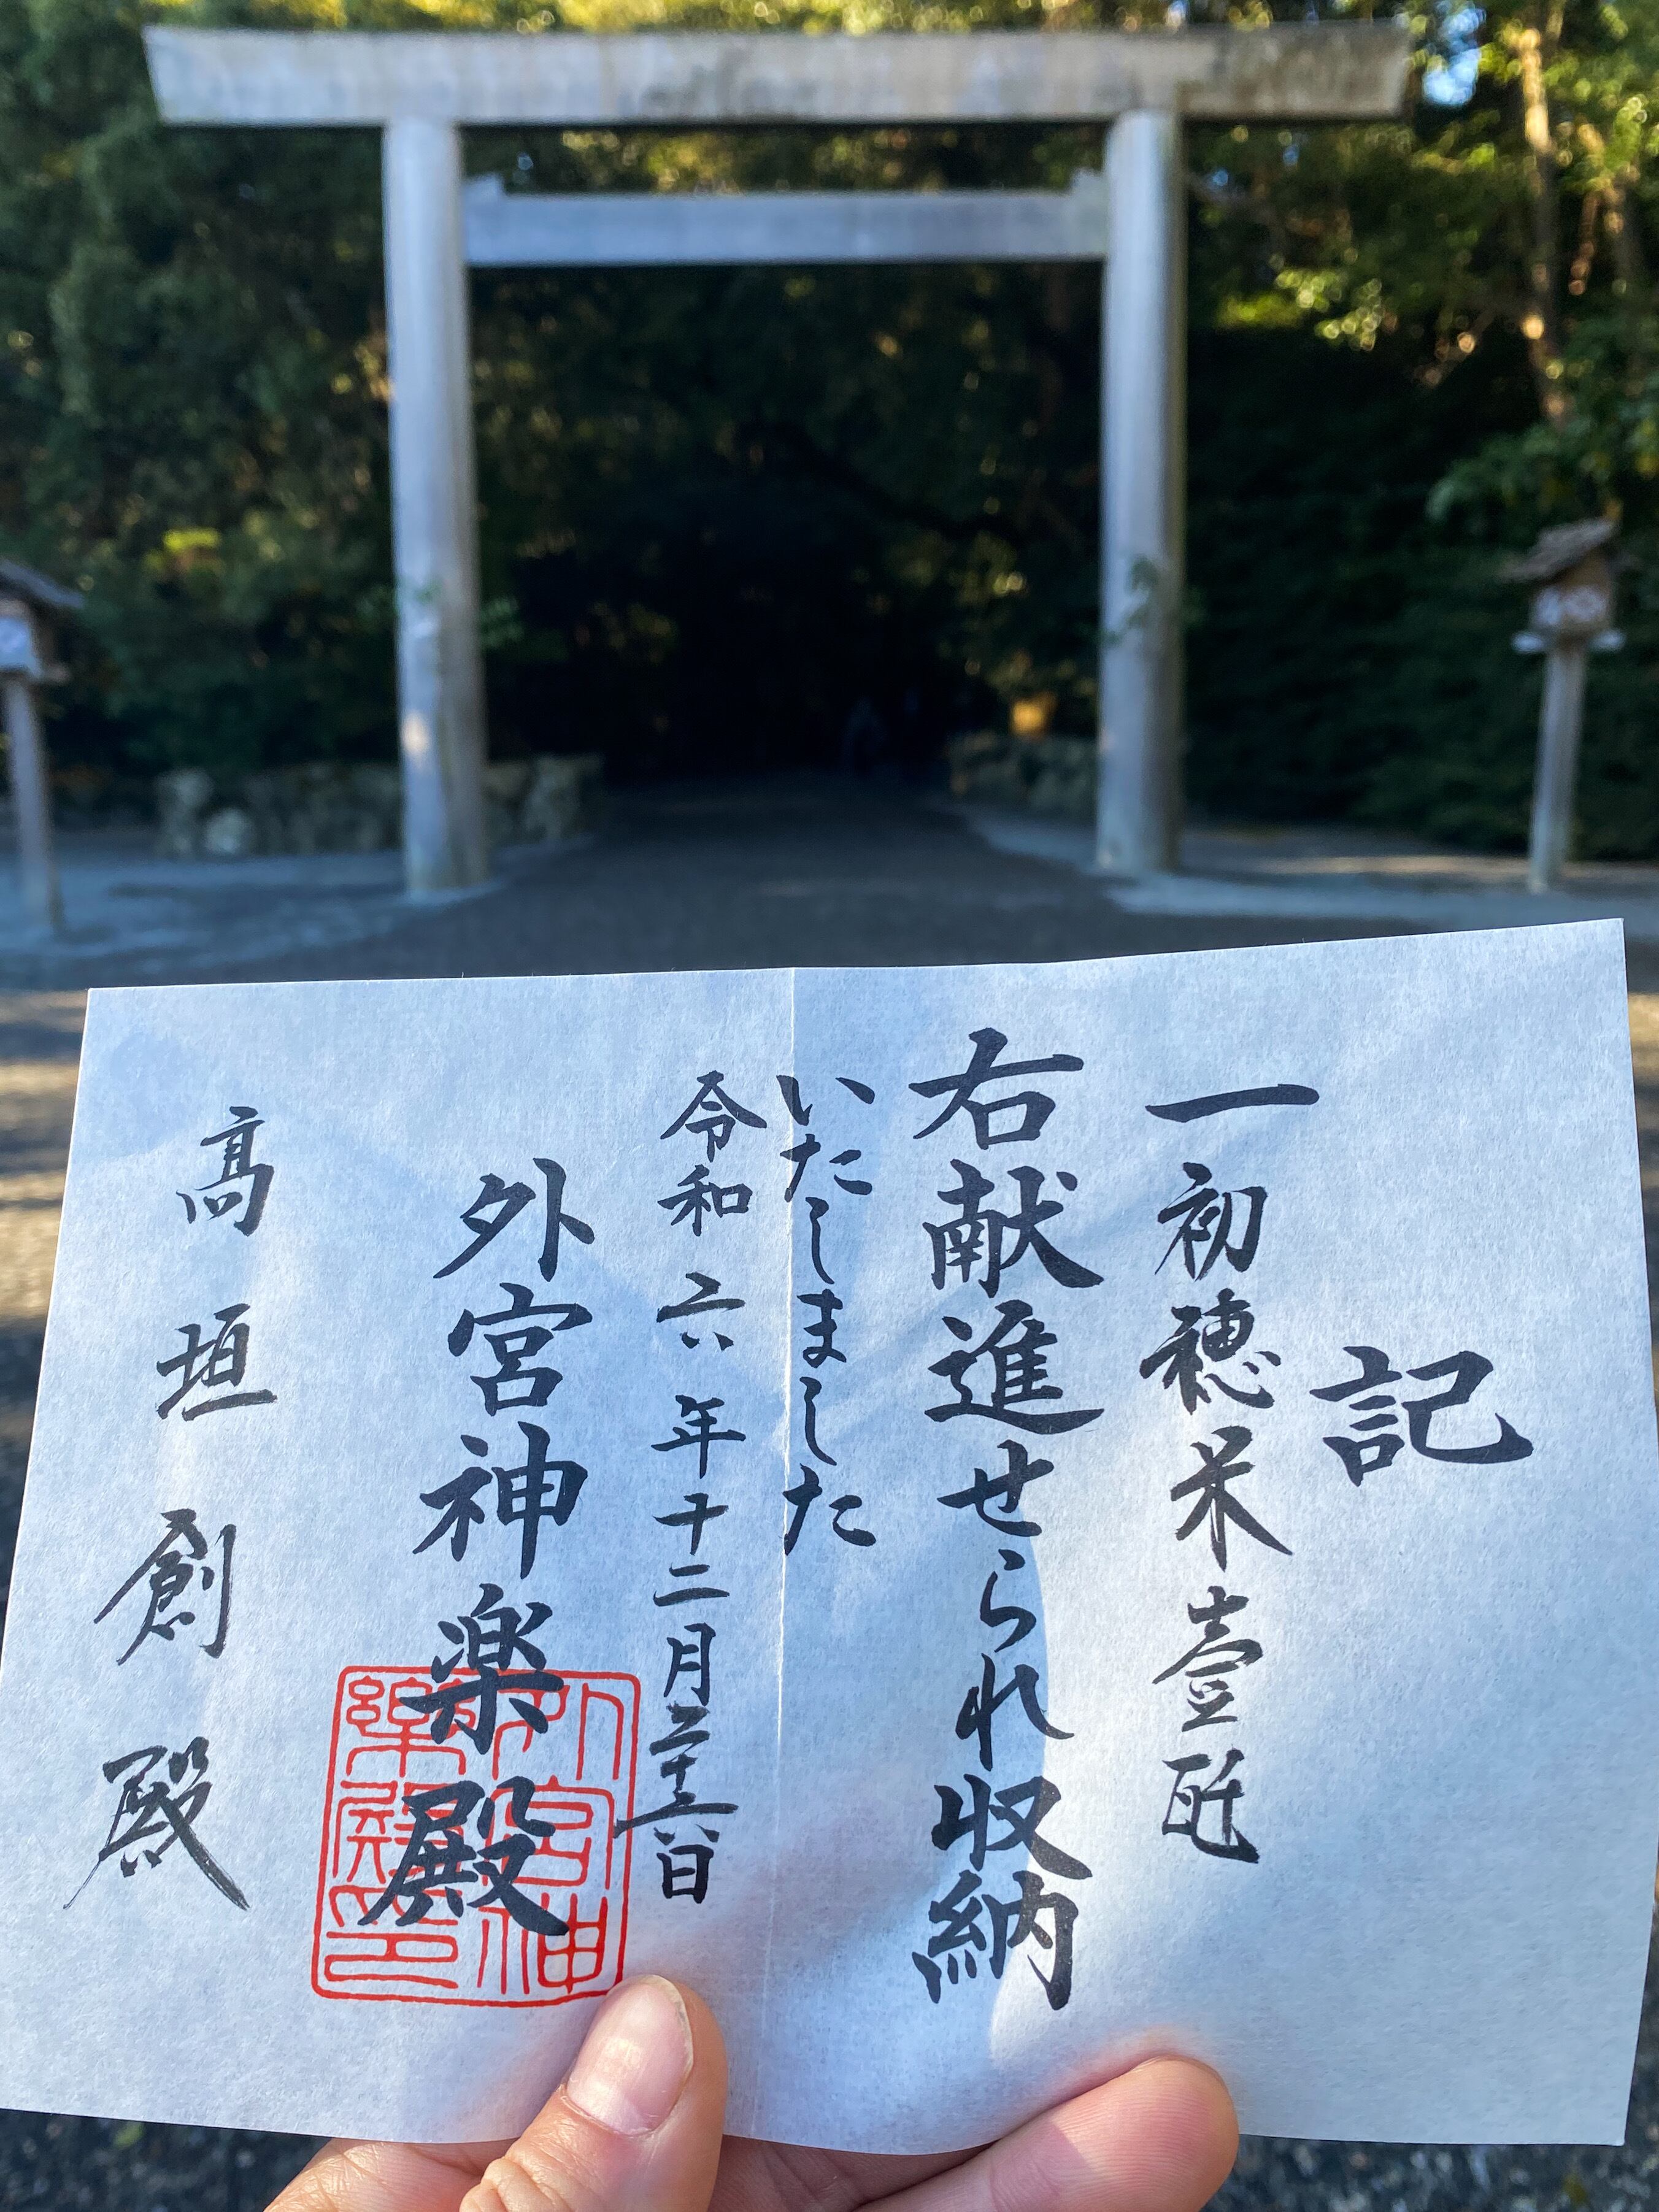 記
一初穂米壹瓩
右献進せられ収納
いたしました
令和六年十二月二十六日
外宮神楽殿
髙垣創殿
外宮神
樂殿印